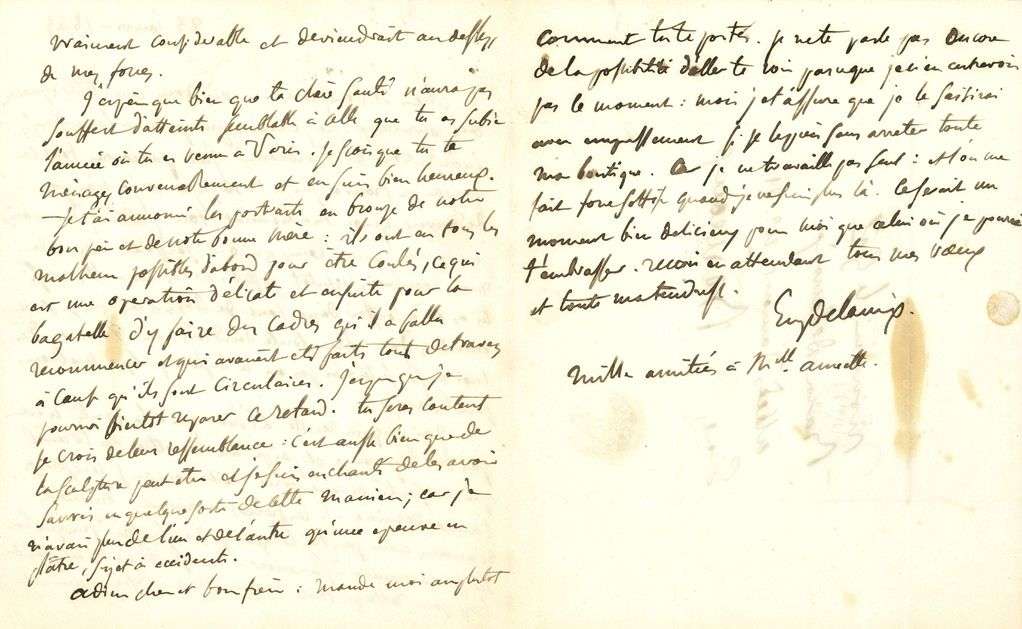 vraiment considerable et deviendrait au dessus
de mes forces.
J'espère que bien que ta chère santé n'aura pas
souffert d'atteinte semblable à celle que tu as subie
l'année où tu es venu à Paris. Je sais que tu te
ménages convenablement et en suis bien heureux.
— Je t'ai annoncé les portraits en bronze de notre
bon père et de notre bonne mère : ils ont eu tous les
malheurs possibles d'abord pour être coulés, ce qui
est une operation délicate et ensuite pour la
bagatelle d'y faire des cadres qu'il a fallu
recommencer et qui avaient été faits tout de travers
à cause qu'ils sont circulaires. J'espère que je
pourrai bientôt reparer ce retard. tu seras content
je crois de leur ressemblance : c'est aussi bien que de
la sculpture peut être et je suis enchanté de les avoir
sauvés en quelque sorte de cette maniere ; car je
n'avais plus de l'un et de l'autre qu'une epreuve en
plâtre, sujet à accidents.
adieu cher et bon frère : mande moi au plutot
comment tu te portes. je ne te parle pas encore
de la possibilité d'aller te voir parceque je n'en entrevois
pas le moment : mais je t'assure que je le saisirai
avec empressement si je le puis sans arreter toute
ma boutique. Car je ne travaille pas seul : et l'on me
fait force sottises quand je ne suis plus là. Ce serait un
moment bien delicieux pour moi que celui où je pourrai
t'embrasser. reçois en attendant tous mes vœux
et toute ma tendresse.
Eug Delacroix.
mille amitiés à Mlle annette.